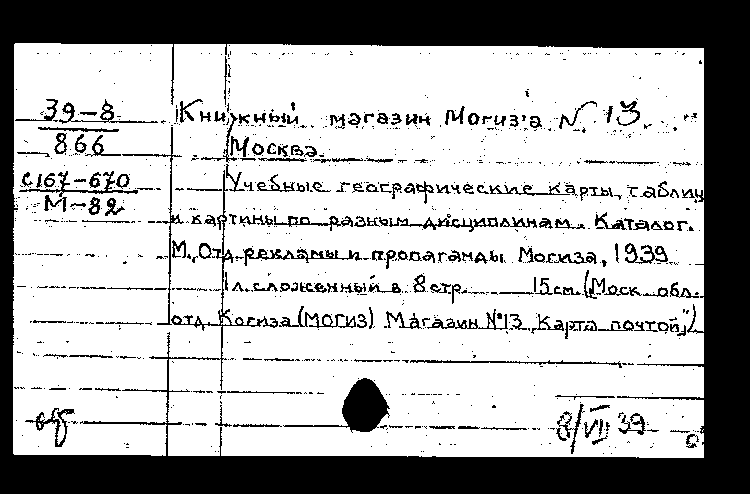 39-8
866
с167-670
М-82
Книжный магазин Могиз'а N. 13.
Москва.
Учебные географические карты, таблиц
и картины по разным дисциплинам. Каталог.
М., Отд. рекламы и пропаганды Могиза, 1939
1 л. сложенный в 8 стр. 15 см. (Моск. обл.
отд. Когиза (МОГИЗ) Магазин №13 "Карта почтой")
8/VII 39